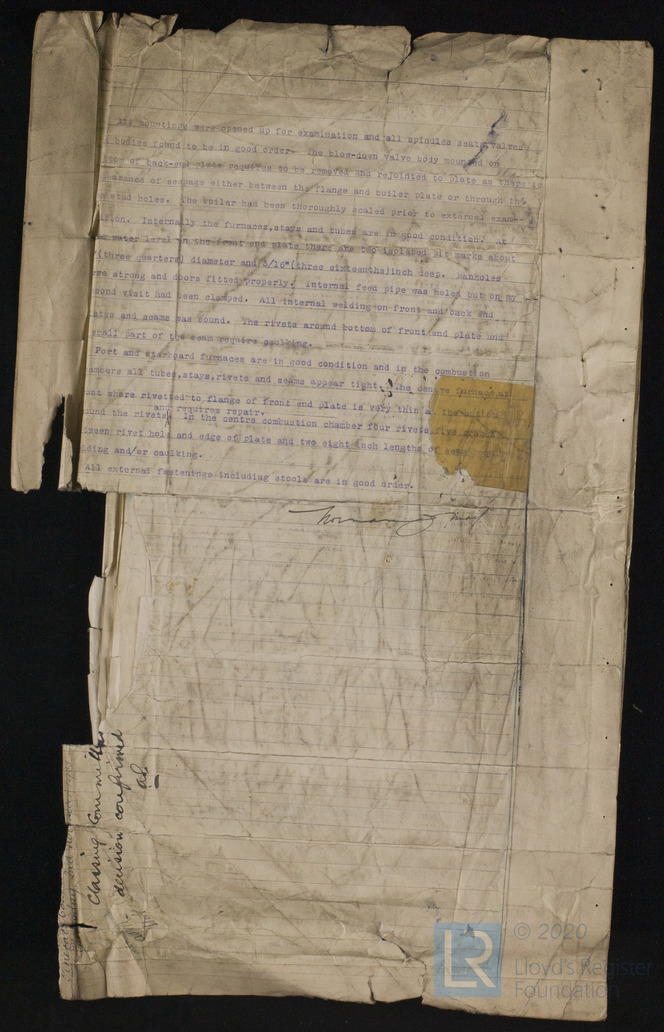 All mountings were opened up for examination and all spindles seats, valves
bodies found to be in good order. The blow-down valve body mounted on
of back-end plate requires to be removed and rejointed to plate as there is
of seepage either between the flange and boiler plate or through the
stud holes. The boiler had been thoroughly scaled prior to external exam-
Internally the furnaces, stays and tubes are in good condition. At
water level on the front end plate there are two isolated pit marks about
(three quarters) diameter and 3/16"(three sixteenths)inch deep. Manholes
strong and doors fitted properly. Internal feed pipe was holed but on my
visit had been clamped. All internal welding on front and back end
and seams was sound. The rivets around bottom of front end plate and
small part of the seam require caulking.
Port and starboard furnaces are in good condition and in the combustion
all tubes, stays, rivets and seams appear tight. The centre furnace, at
where rivetted to flange of front end plate is very thin at the bottom
and requires repair.
the rivets. In the centre combustion chamber four rivets, five
rivet hole and edge of plate and two eight inch lengths of
and/or caulking.
All external fastenings including stools are in good order.
Norman
Classing Committee
decision confirmed
© 2020
LR
Lloyd's Register
Foundation